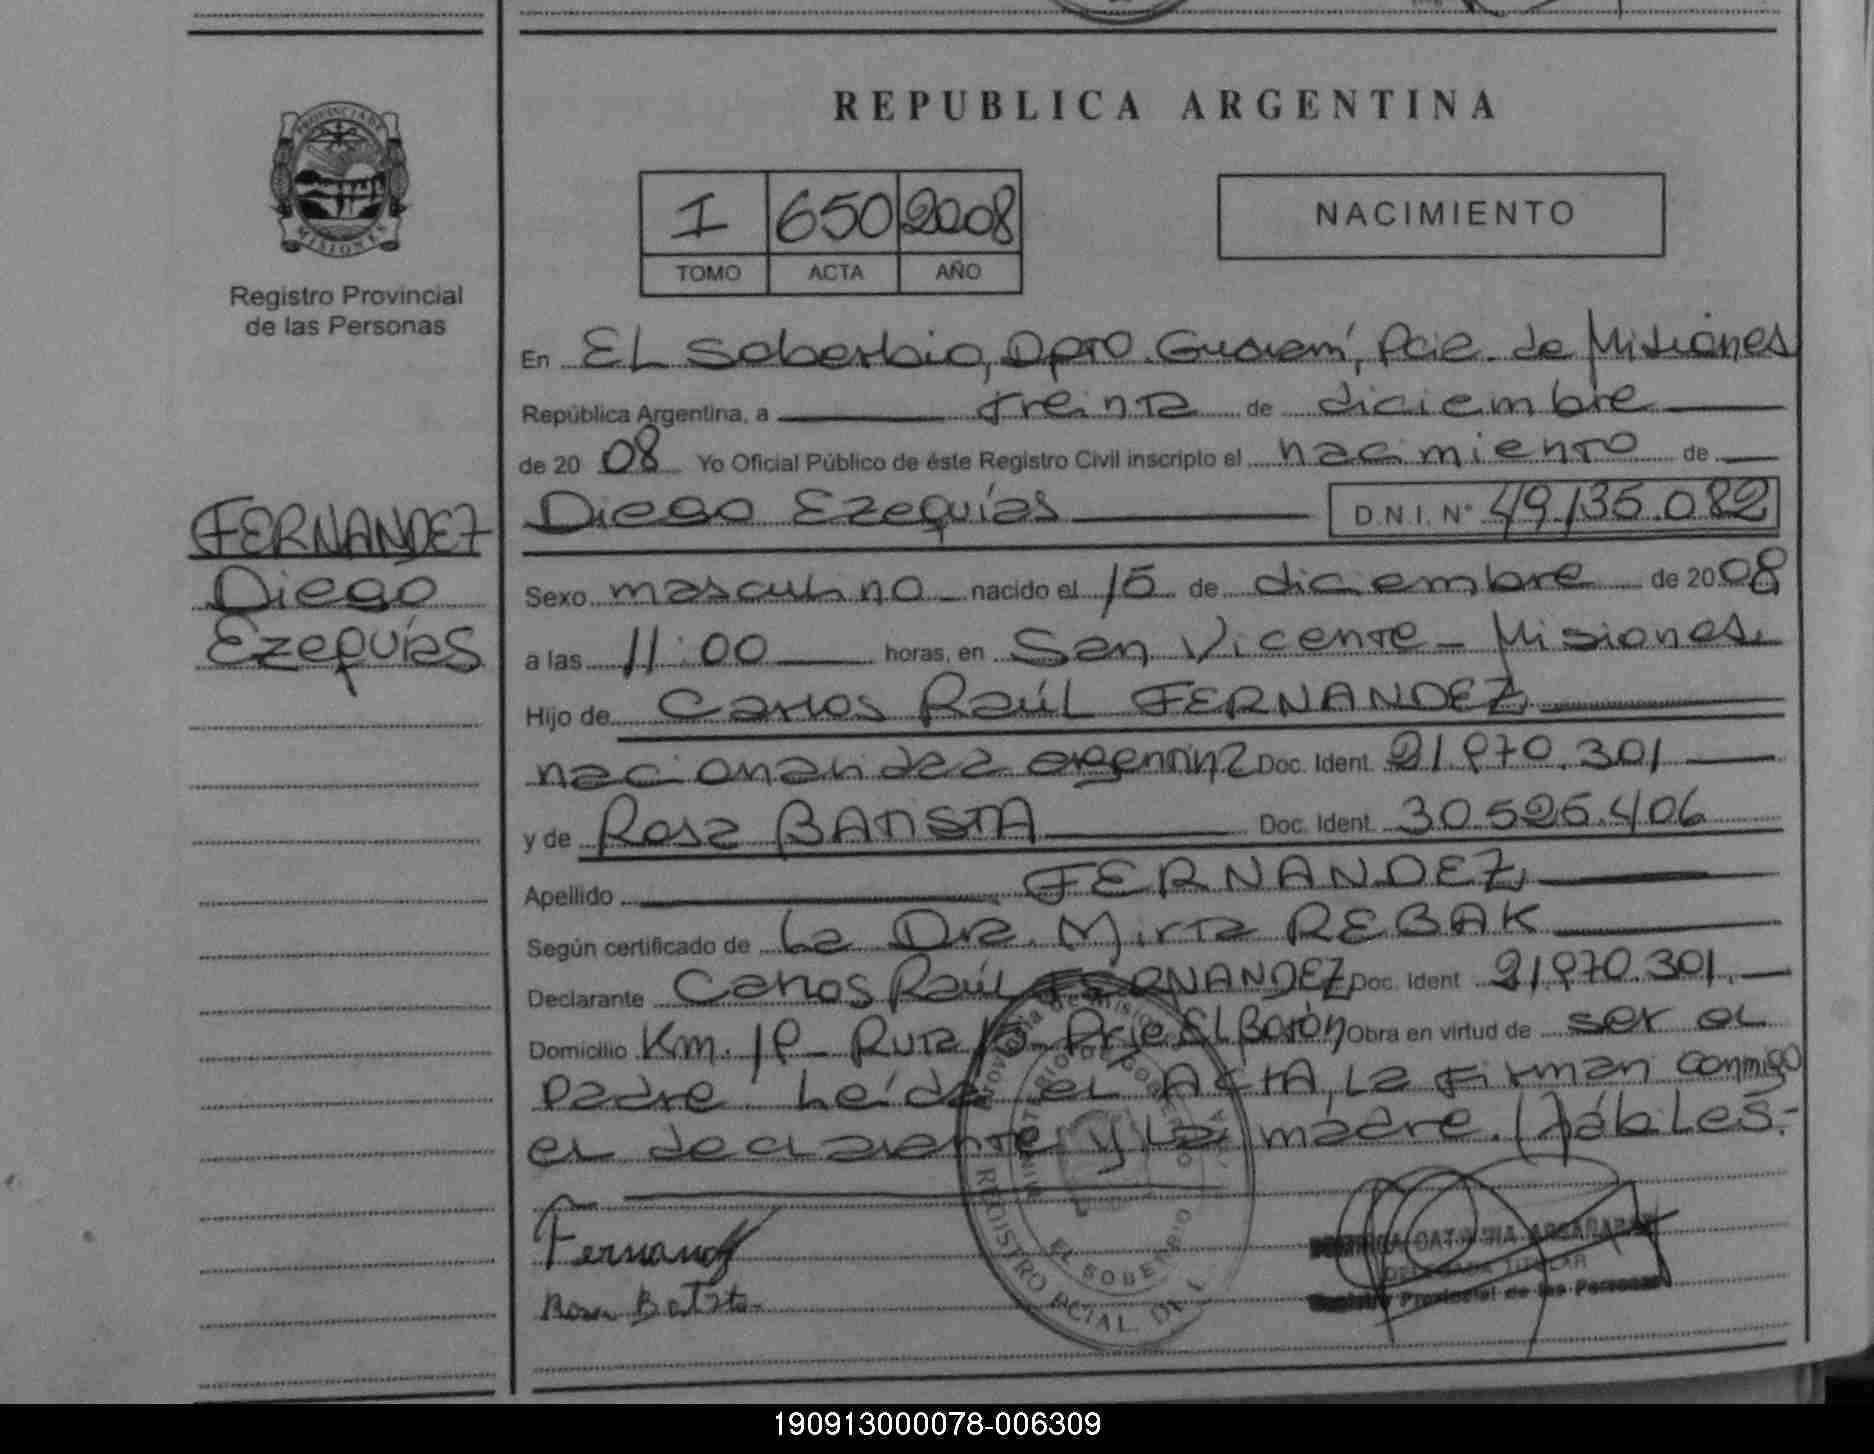 REPUBLICA ARGENTINA
PROVINCIA DE
MISIONES
Registro Provincial
de las Personas
I 650 2008
TOMO ACTA AÑO
NACIMIENTO
En EL Soberbio, Dpto. Guaraní, Pcia. de Misiones
República Argentina, a treinta de diciembre
de 2008 Yo Oficial Público de éste Registro Civil inscripto el nacimiento de
Diego Ezequías D.N.I. N° 49.135.082
FERNANDEZ
Diego
Ezequías
Sexo masculino nacido el 15 de diciembre de 2008
a las 11:00 horas, en San Vicente - Misiones.
Hijo de Carlos Raúl FERNANDEZ
nacionalidad argentina Doc. Ident. 21.970.301
y de Rosa BATISTA Doc. Ident. 30.526.406
Apellido FERNANDEZ
Según certificado de La Dra. Mirta REBAK
Declarante Carlos Raúl FERNANDEZ Doc. Ident 21.970.301
Domicilio Km. Ruta Pje El Obra en virtud de ser el
padre. Leída el ACTA, la firman conmigo
el declarante y la madre. Hábiles.-
Fernand
Rosa Batista
Provincia de Misiones
MINISTERIO DE GOBIERNO
REGISTRO DE L
EL SOBERBIO
DELEGADA TITULAR
Registro Provincial de las Personas
190913000078-006309